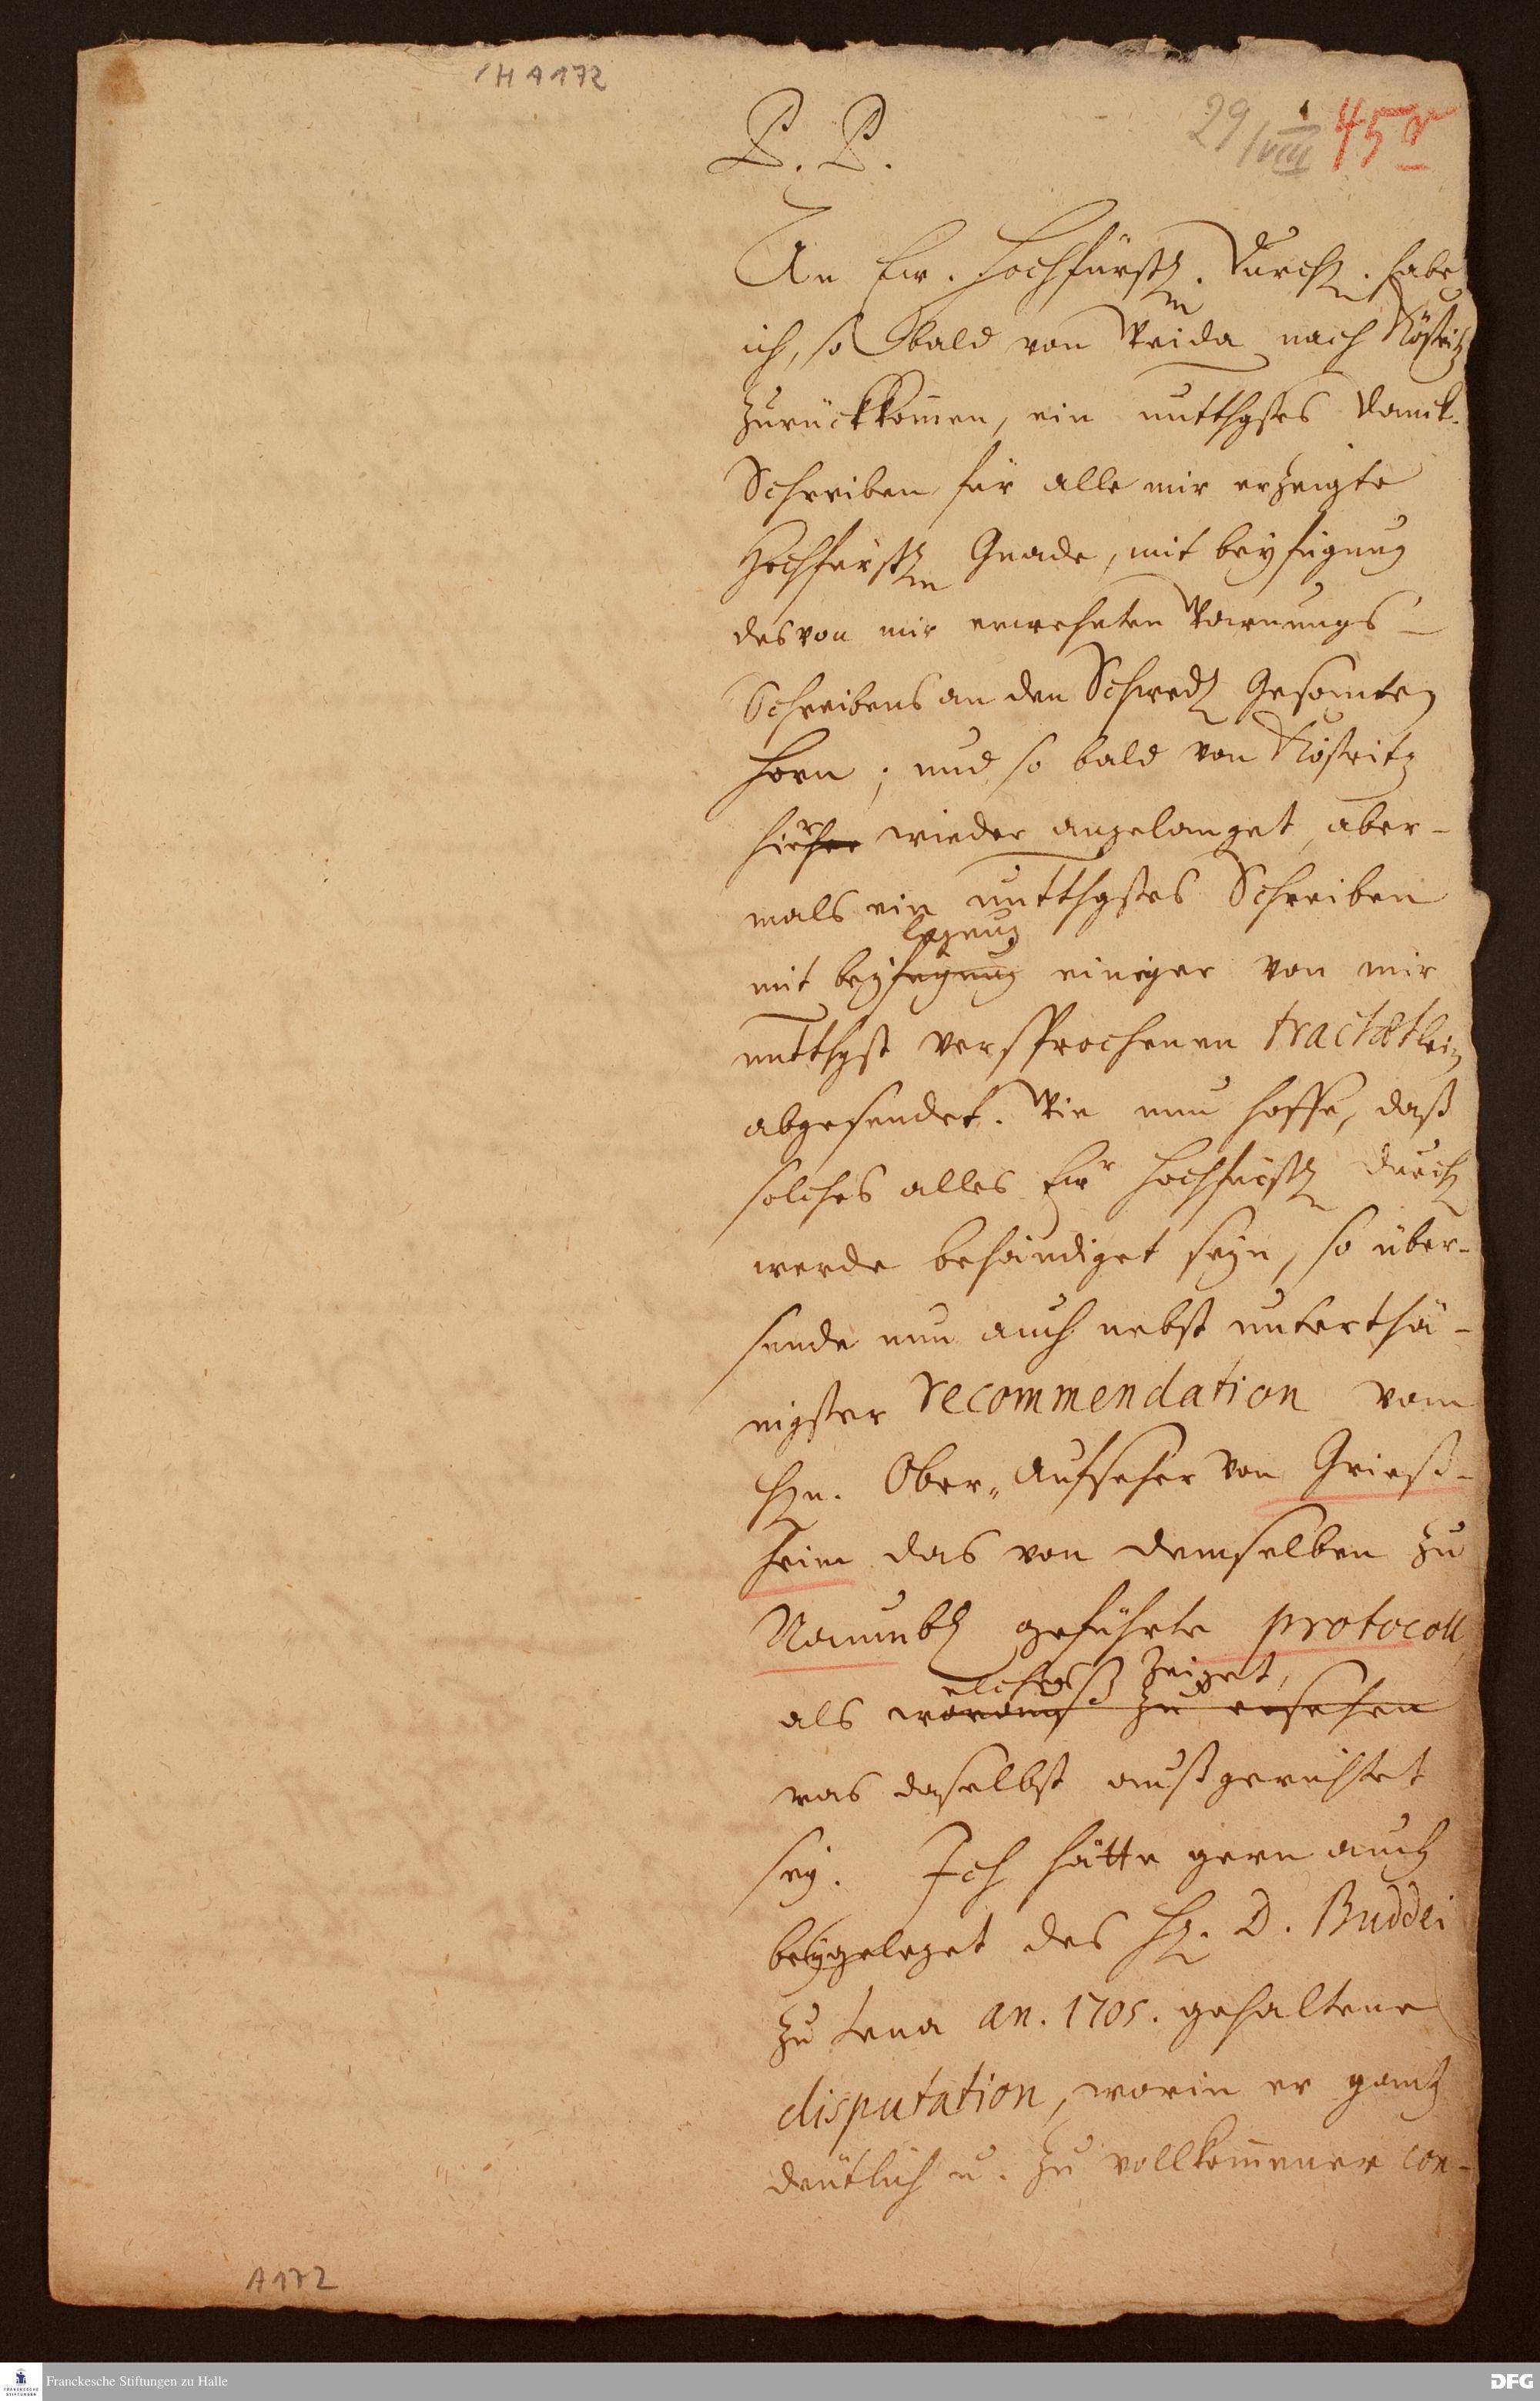 /H A 172
P. P.
29/VIII 45r
An Ew. Hochfürstl. Durchl. habe
ich, so bald von Weida nach Köstritz
zurückkom̄en, ein untthgstes Danck-
Schreiben für alle mir erzeigte
Hochfürstl Gnade, mit beyfügung
des von mir erwehnten Warnungs-
Schreibens an den Schwed. Gesandten
Horn; und so bald von Köstritz
hierher wieder angelanget, aber-
mals ein untthgstes Schreiben
legung
mit beyfügung einiger von mir
untthgst versprochenen tractätlein
abgesendet. Wie nun hoffe, daß
solches alles Ewr Hochfürstl Durchl
werde behändiget seyn, so über-
sende nun auch nebst unterthä-
nigster recommendation vom
Hrn. Ober-Aufseher von Grieß-
heim das von demselben zu
Naumb. geführte protocoll
elches zeiget,
als woraus zu ersehen
was daselbst außgerichtet
sey. Ich hätte gern auch
beygeleget des H. D. Buddei
zu Jena an. 1705. gehaltene
disputation, worin er gantz
deutlich u. zu vollkom̄ener con-
A 172
Franckesche Stiftungen zu Halle
DFG